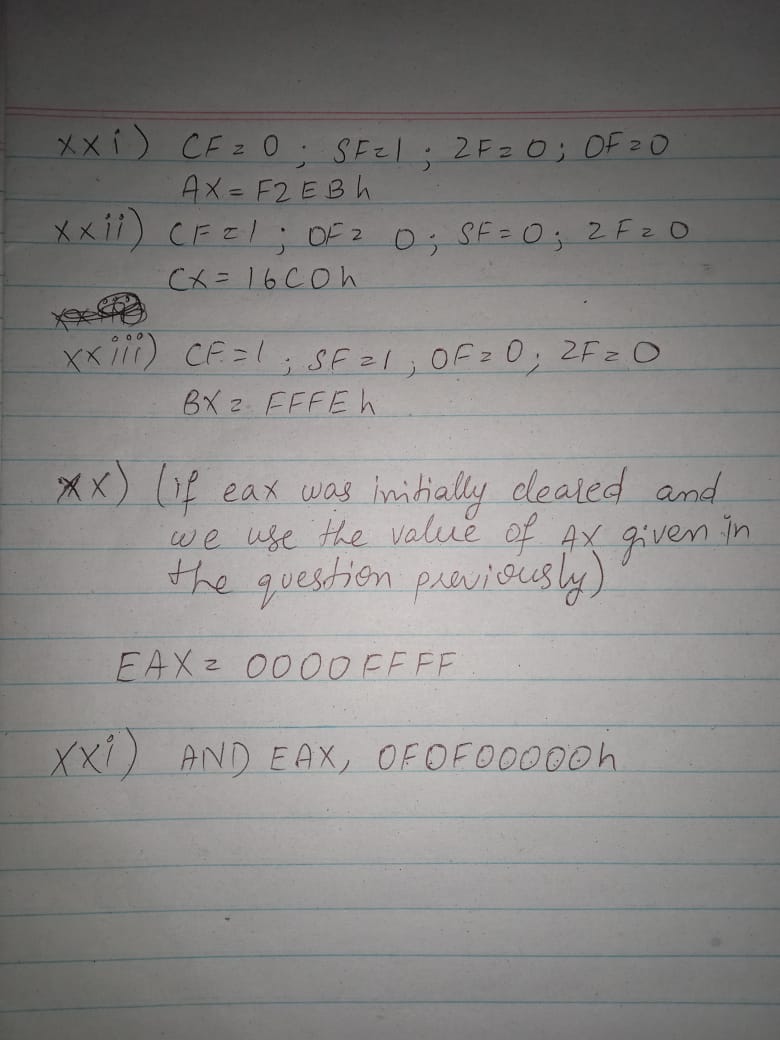 xxi) CF=0; SF=1; ZF=0; OF=0
AX=F2EBh
xxii) CF=1; OF=0; SF=0; ZF=0
CX=16C0h
xxiii) CF=1; SF=1; OF=0; ZF=0
BX=FFFEh
xx) (if eax was initially cleared and
we use the value of AX given in
the question previously)
EAX=0000FFFF
xxi) AND EAX, 0F0F00000h